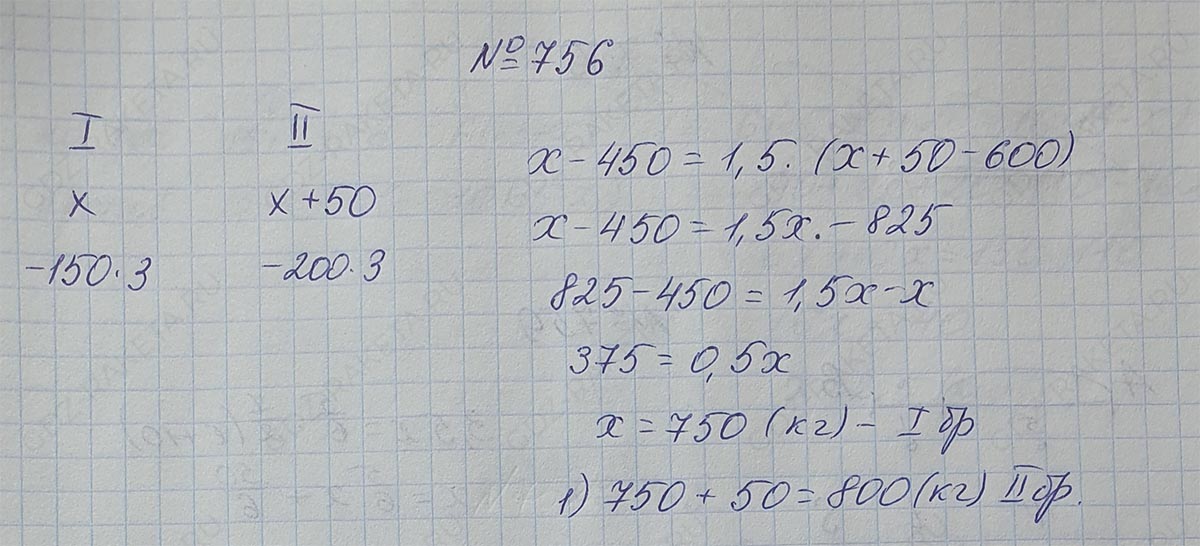 №756
I II
x x+50
-150·3 -200·3
x-450=1,5·(x+50-600)
x-450=1,5x.-825
825-450=1,5x-x
375=0,5x
x=750 (кг)- I бр
1) 750+50=800(кг) II бр.